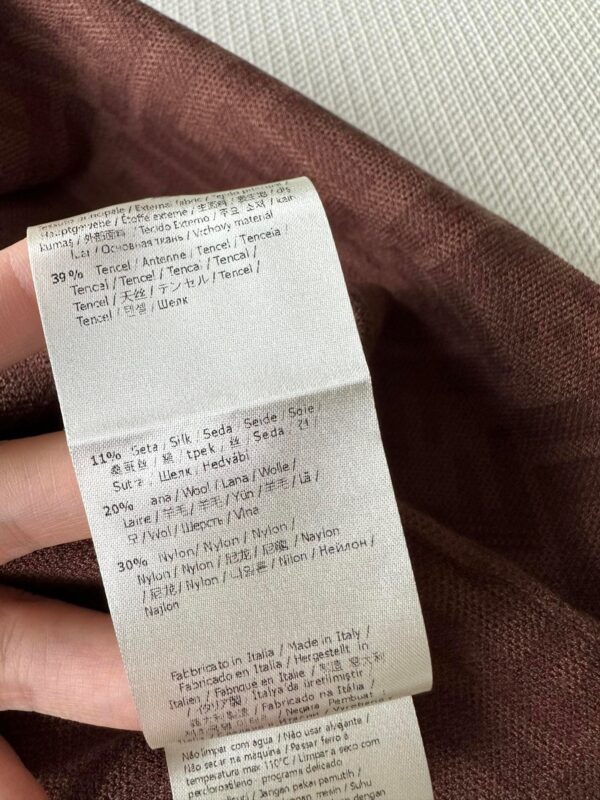 principale / External fabric /
Hauptgewebe / Étoffe externe / 主面料 /
kumaş / 外部面料 Tecido Externo / 주요 소재 / kain
Основная ткань / Vrchovy material
39% Tencel / Antenne / Tencel / Tenceia /
Tencel / Tencel / Tencal / Tencal /
Tencel / 天丝 / テンセル / Tencel /
Tencel / 텐셀 / Шелк
11% Seta / Silk / Seda / Seide / Soie /
桑蚕丝 / 絲 / tpek / 丝 / Seda /
Шелк / Hedvábí
20% ana / Wool / Lana / Wolle /
Laine / 羊毛 / 羊毛 / Yün / 羊毛 / Lã /
모 / Wol / Шерсть / Vlna
30% Nylon / Nylon / Nylon /
Nylon / Nylon / 尼龙 / 尼龍 / Naylon
/ 尼龙 / Nylon / 나일론 / Nilon / Нейлон /
Najlon
Fabbricato in Italia / Made in Italy /
Fabricado en Italia / Hergestellt in
Italien / Fabriqué en Italie / 製造 意大利
/ (イタリア製) Italya da üretilmiştir
義大利製造 / Fabricado na Itália /
Negara Pembuat
Não limpar com água / Não usar alvejante /
Não secar na máquina / Passar ferro à
temperatura max 110°C / Limpar a seco com
percloroetileno - programa delicado
/ Jangan pakai pemutih /
mesin / Suhu
dengan